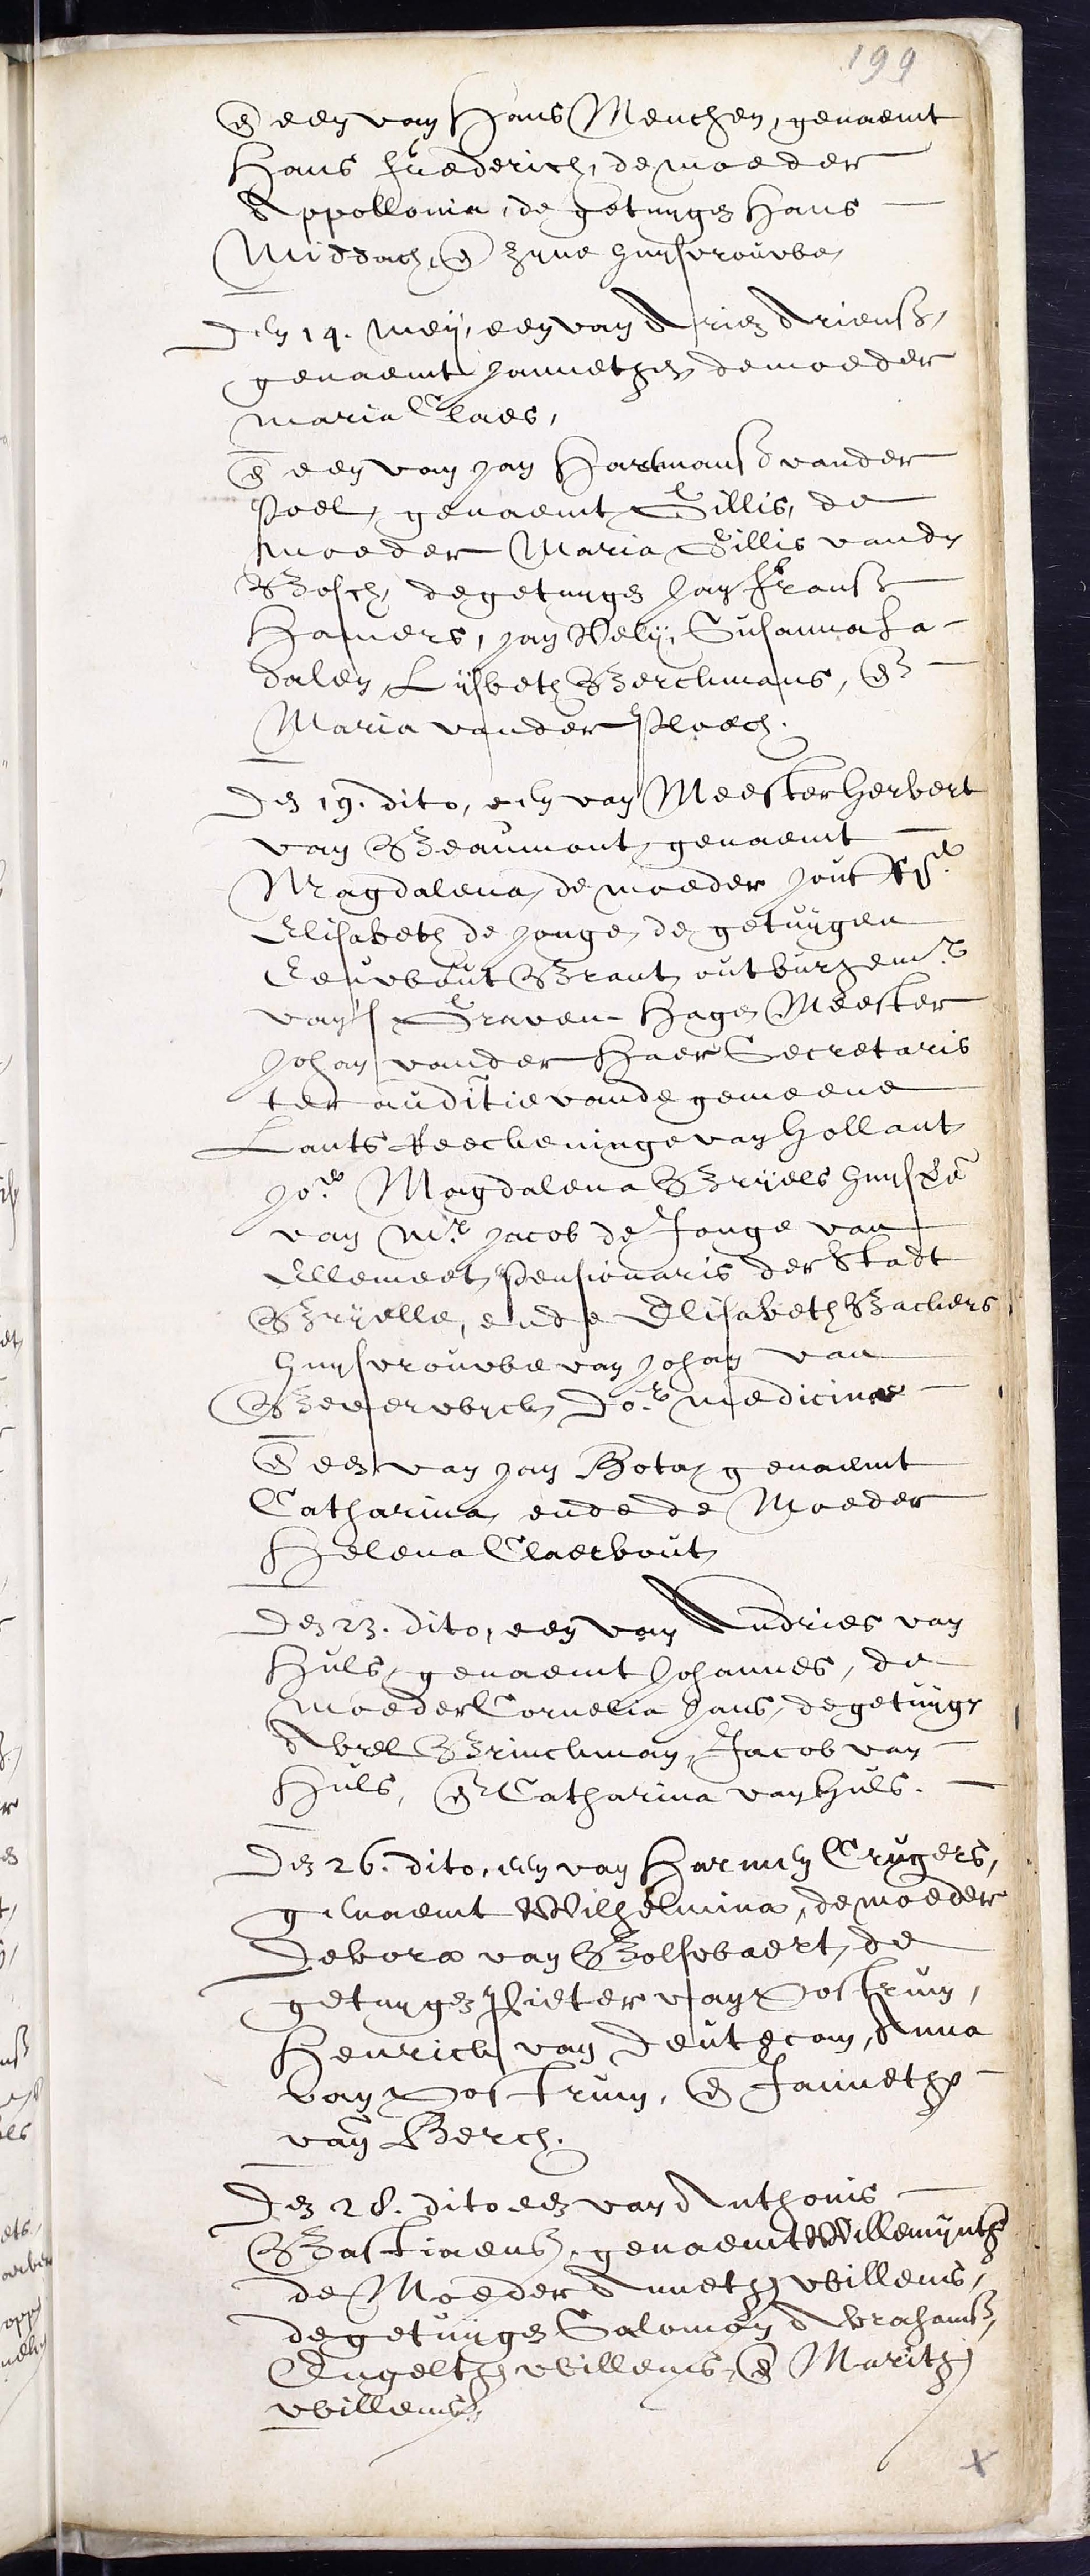 199
en̄ een van Hans Menchen, genaemt
Hans friederich, de moeder
Appollonia, de getuygen Hans
Middach, en̄ zyne huysvrouwe,
Den 14. meij, een van Arien Ariensz,
genaemt Jannethen de moeder
maria Claes,
en̄ een van Jan Hartmansz vander
Poel, genaemt Gillis, de
moeder Maria Gillis vanden
Bosch, de getuygen Jan Fransz
Hamers, Jan Nelij, Susanna La-
dalen, Lijsbeth Berckmans, en̄
Maria vander Ploech.
Den 19. dito, een van Meester Herbert
van Beaumont, genaemt
Magdalena, de moeder Jonckfr.
Elisabeth de Jonge, de getuijgen
Eeuwout Brant, outburgemr.
van 's Graven-Hage, Meester
Johan vander Haer Secretaris
ter auditie vande gemeene
Lants Reeckeninge van Hollant
Jo.e Magdalena Bryels huysvr.
van Mr. Jacob de Jonge van
Ellemeet, Pensionaris der Stadt
Bryelle, ende Elisabeth Backers
huysvrouwe van Johan van
Beverwyck, Do.r medicinae
en̄ een van Jan Bota, genaemt
Catharina, ende de Moeder
Helena Claerbout,
Den 23. dito, een van Andries van
Huls, genaemt Johannes, de
moeder Cornelia Jans, de getuijgen
Abel Brinckman, Jacob van
Huls, en̄ Catharina van Huls.
Den 26. dito, een van Harmen Crugers,
genaemt Wilhelmina, de moeder
Debora van Bolswaert, de
getuygen Pieter van Oostrum,
Henrick van Deutecom, Anna
van Oostrum, en̄ Janneth
van Berch.
Den 28. dito een van Anthonis
Bastiaensz, genaemt Willemijnth
de Moeder Anneth Willems,
de getuijgen Salomon Abrahamsz,
Engelth Willems, en̄ Marith
Willemsz,
x